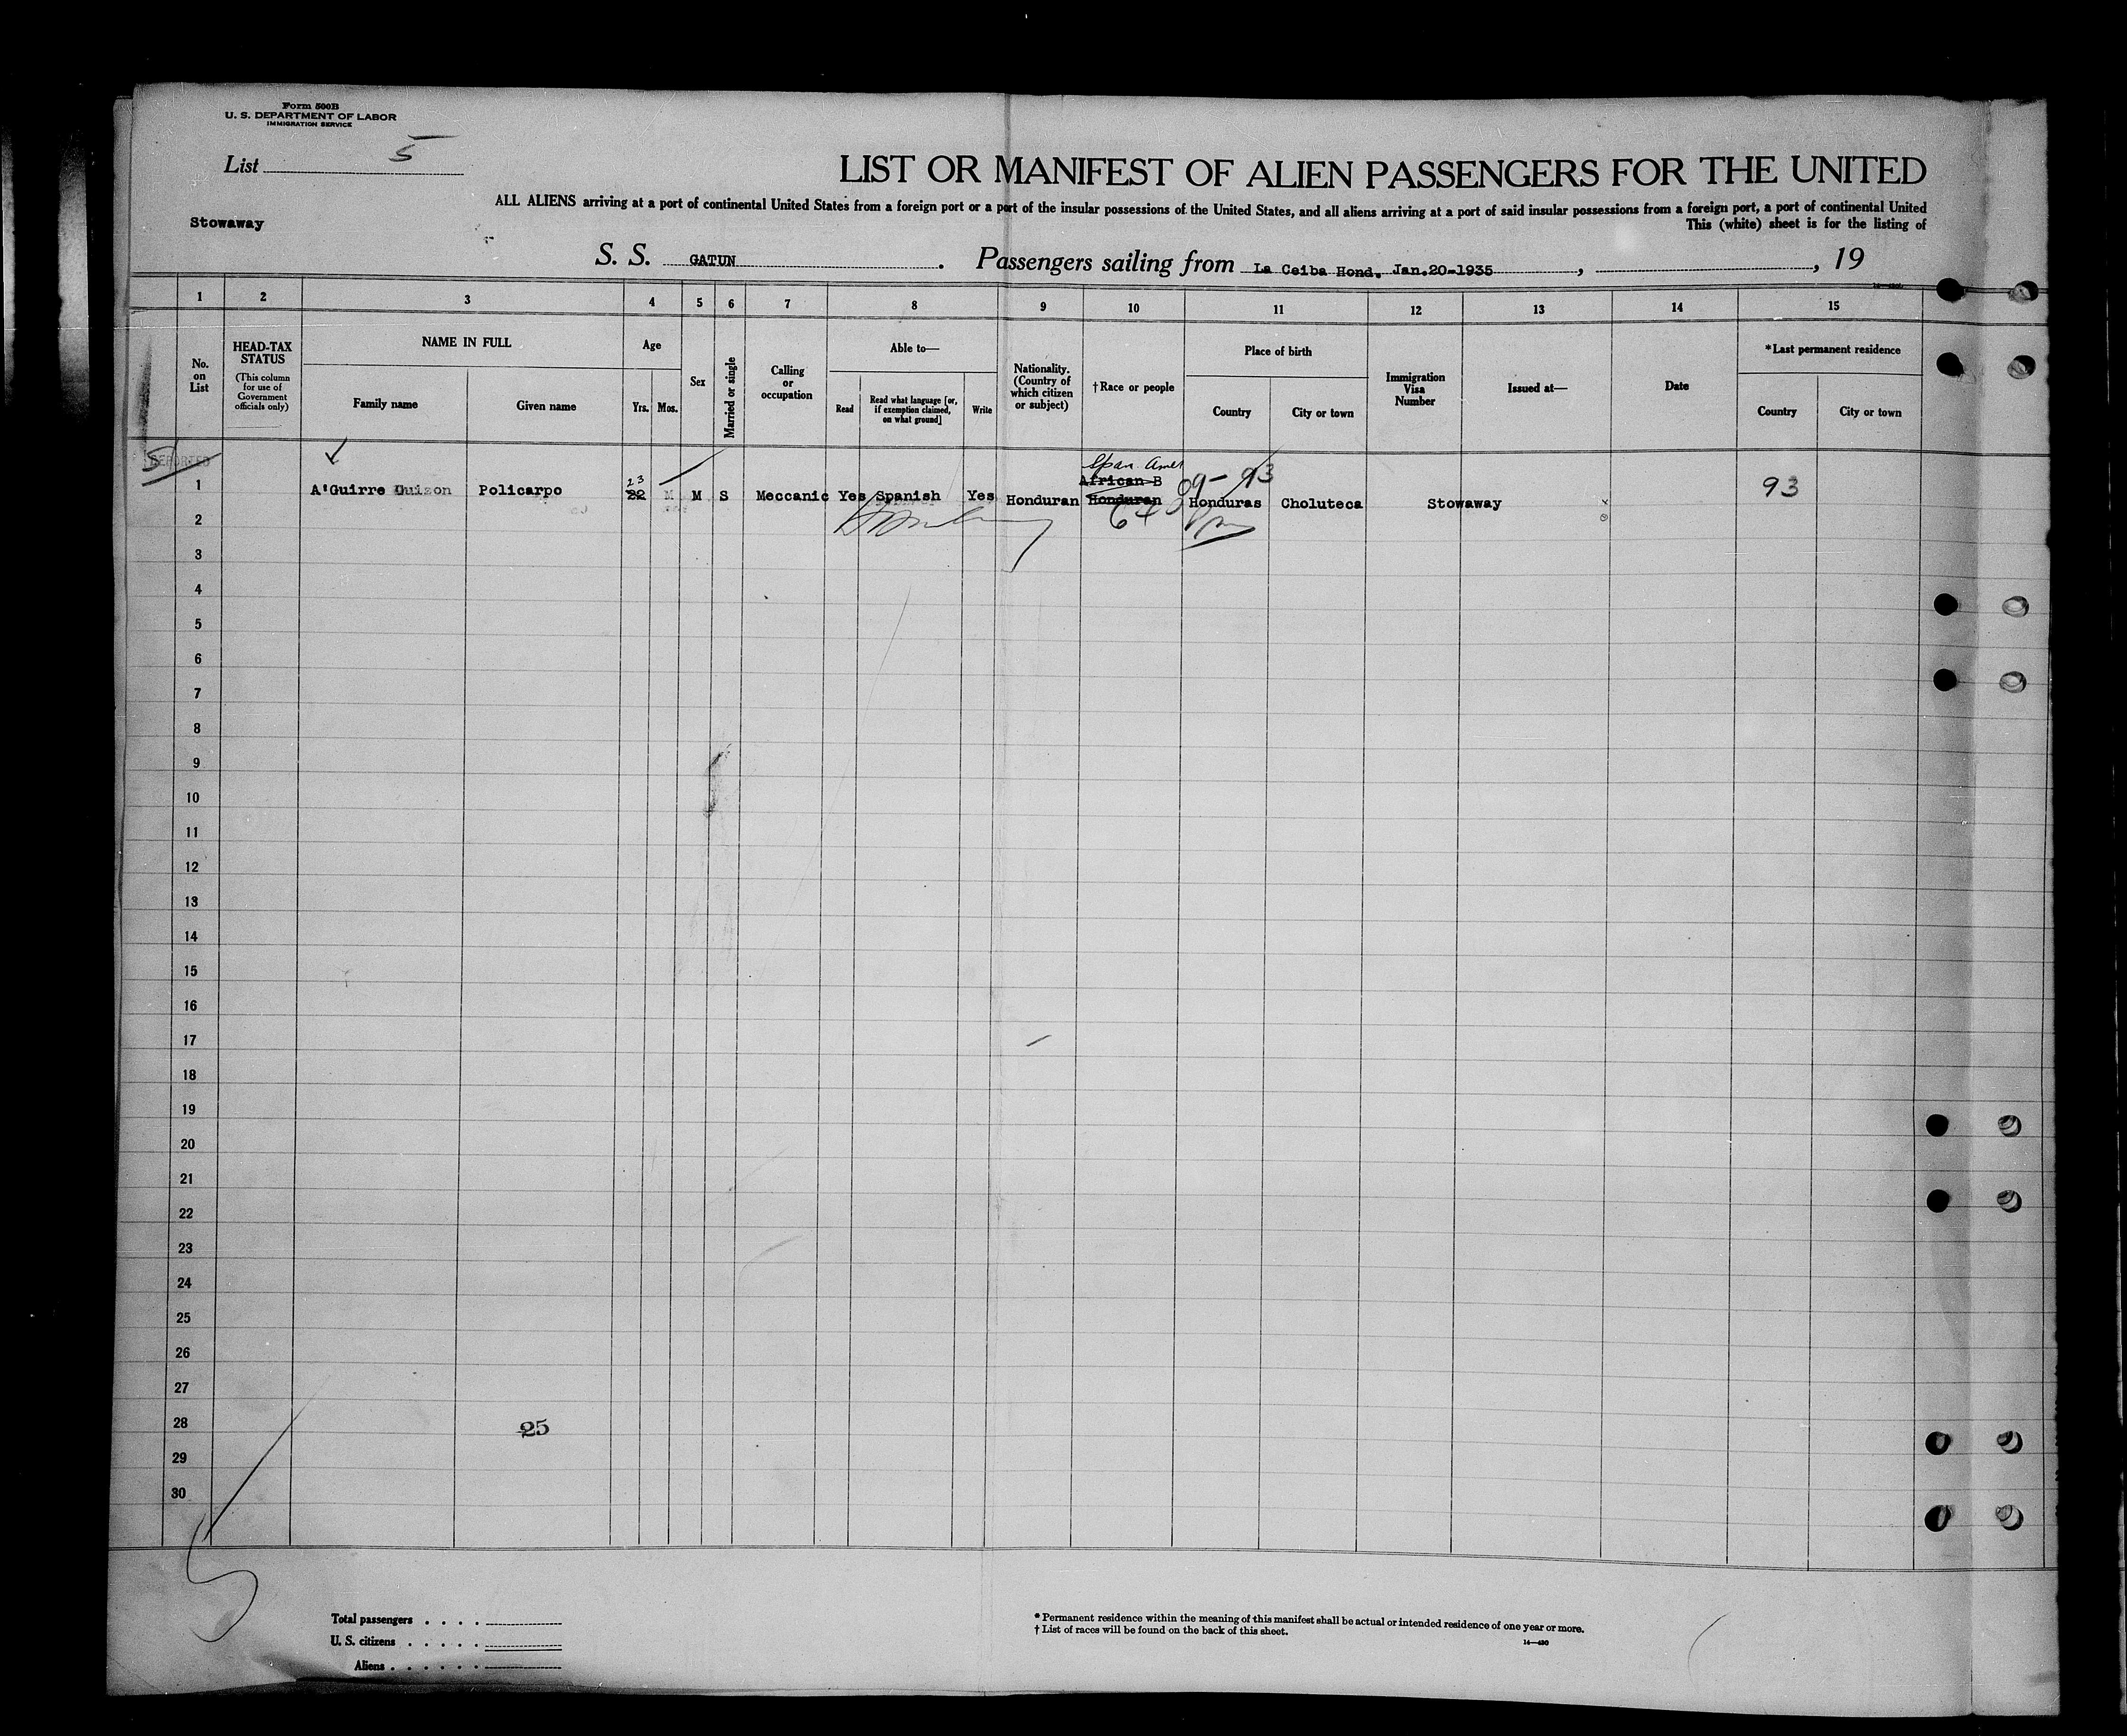 Form 500B
U. S. DEPARTMENT OF LABOR
IMMIGRATION SERVICE
List 5
LIST OR MANIFEST OF ALIEN PASSENGERS FOR THE UNITED
ALL ALIENS arriving at a port of continental United States from a foreign port or a port of the insular possessions of the United States, and all aliens arriving at a port of said insular possessions from a foreign port, a port of continental United
This (white) sheet is for the listing of
Stowaway
S. S. GATUN. Passengers sailing from La Ceiba Hond. Jan.20-1935, , 19
1 2 3 4 5 6 7 8 9 10 11 12 13 14 15
No. on List
HEAD-TAX STATUS
(This column for use of Government officials only)
NAME IN FULL
Family name
Given name
Age
Yrs.
Mos.
Sex
Married or single
Calling or occupation
Able to—
Read
Read what language [or, if exemption claimed, on what ground]
Write
Nationality. (Country of which citizen or subject)
†Race or people
Place of birth
Country
City or town
Immigration Visa Number
Issued at—
Date
*Last permanent residence
Country
City or town
5
Span Amer
23
African B
93
1 A'Guirre Quizon Policarpo 22 M M S Meccanic Yes Spanish Yes Honduran Honduran Honduras Choluteca Stowaway 93
64
2
3
4
5
6
7
8
9
10
11
12
13
14
15
16
17
18
19
20
21
22
23
24
25
26
27
28 25
29
30
Total passengers . . . .
U. S. citizens . . . . .
Aliens . . . . . .
* Permanent residence within the meaning of this manifest shall be actual or intended residence of one year or more.
† List of races will be found on the back of this sheet.
14—430